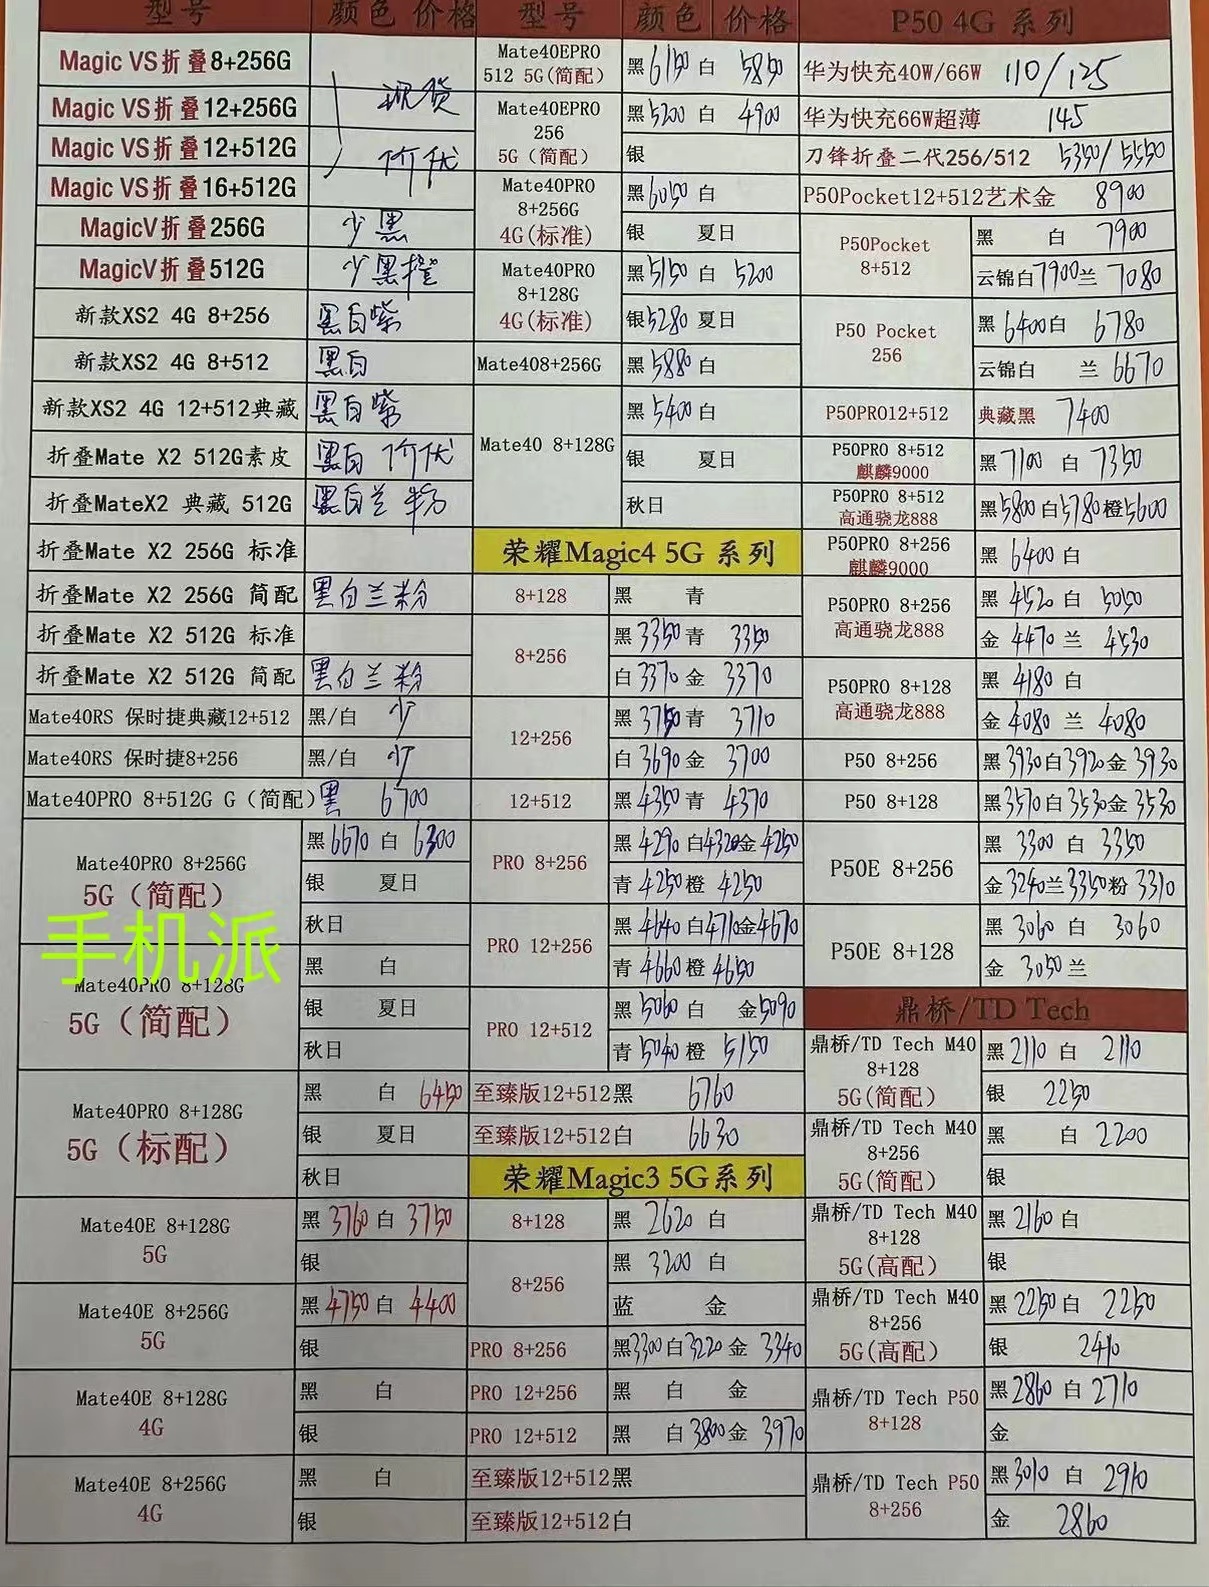 型号 颜色 价格
Magic VS折叠8+256G
Magic VS折叠12+256G 现货
Magic VS折叠12+512G 价优
Magic VS折叠16+512G
MagicV折叠256G 少黑
MagicV折叠512G 少黑橙
新款XS2 4G 8+256 黑白紫
新款XS2 4G 8+512 黑白
新款XS2 4G 12+512典藏 黑白紫
折叠Mate X2 512G素皮 黑白 价优
折叠MateX2 典藏 512G 黑白兰粉
折叠Mate X2 256G 标准
折叠Mate X2 256G 简配 黑白兰粉
折叠Mate X2 512G 标准
折叠Mate X2 512G 简配 黑白兰粉
Mate40RS 保时捷典藏12+512 黑/白 少
Mate40RS 保时捷8+256 黑/白 少
Mate40PRO 8+512G G（简配）黑 6700
Mate40PRO 8+256G
5G（简配）
黑 6670 白 6300
银 夏日
秋日
手机派
Mate40PRO 8+128G
5G（简配）
黑 白
银 夏日
秋日
Mate40PRO 8+128G
5G（标配）
黑 白 6450
银 夏日
秋日
Mate40E 8+128G
5G
黑 3760 白 3750
银
Mate40E 8+256G
5G
黑 4750 白 4400
银
Mate40E 8+128G
4G
黑 白
银
Mate40E 8+256G
4G
黑 白
银
型号 颜色 价格
Mate40EPRO
512 5G(简配)
黑 6150 白 5850
Mate40EPRO
256
5G（简配）
黑 5200 白 4900
银
Mate40PRO
8+256G
4G(标准)
黑 6050 白
银 夏日
Mate40PRO
8+128G
4G(标准)
黑 5150 白 5200
银 5280 夏日
Mate408+256G 黑 5880 白
Mate40 8+128G
黑 5400 白
银 夏日
秋日
荣耀Magic4 5G 系列
8+128 黑 青
8+256
黑 3350 青 3350
白 3370 金 3370
12+256
黑 3750 青 3710
白 3690 金 3700
12+512 黑 4350 青 4370
PRO 8+256
黑 4290 白 4320 金 4250
青 4250 橙 4250
PRO 12+256
黑 4640 白 4710 金 4670
青 4660 橙 4650
PRO 12+512
黑 5060 白 金 5090
青 5040 橙 5150
至臻版12+512黑 6760
至臻版12+512白 6630
荣耀Magic3 5G系列
8+128 黑 2620 白
8+256
黑 3200 白
蓝 金
PRO 8+256 黑 3300 白 3220 金 3340
PRO 12+256 黑 白 金
PRO 12+512 黑 白 3800 金 3970
至臻版12+512黑
至臻版12+512白
P50 4G 系列
华为快充40W/66W 110/125
华为快充66W超薄 145
刀锋折叠二代256/512 5350/5550
P50Pocket12+512艺术金 8900
P50Pocket
8+512
黑 白 7900
云锦白 7900 兰 7080
P50 Pocket
256
黑 6400 白 6780
云锦白 兰 6670
P50PRO12+512 典藏黑 7400
P50PRO 8+512
麒麟9000
黑 7100 白 7350
P50PRO 8+512
高通骁龙888
黑 5800 白 5780 橙 5600
P50PRO 8+256
麒麟9000
黑 6400 白
P50PRO 8+256
高通骁龙888
黑 4520 白 5050
金 4470 兰 4530
P50PRO 8+128
高通骁龙888
黑 4180 白
金 4080 兰 4080
P50 8+256 黑 3930 白 3920 金 3930
P50 8+128 黑 3570 白 3530 金 3530
P50E 8+256
黑 3300 白 3350
金 3240 兰 3350 粉 3310
P50E 8+128
黑 3060 白 3060
金 3050 兰
鼎桥/TD Tech
鼎桥/TD Tech M40
8+128
5G(简配)
黑 2110 白 2110
银 2250
鼎桥/TD Tech M40
8+256
5G(简配)
黑 白 2200
银
鼎桥/TD Tech M40
8+128
5G(高配)
黑 2160 白
银
鼎桥/TD Tech M40
8+256
5G(高配)
黑 2250 白 2250
银 2410
鼎桥/TD Tech P50
8+128
黑 2860 白 2710
金
鼎桥/TD Tech P50
8+256
黑 3010 白 2910
金 2860